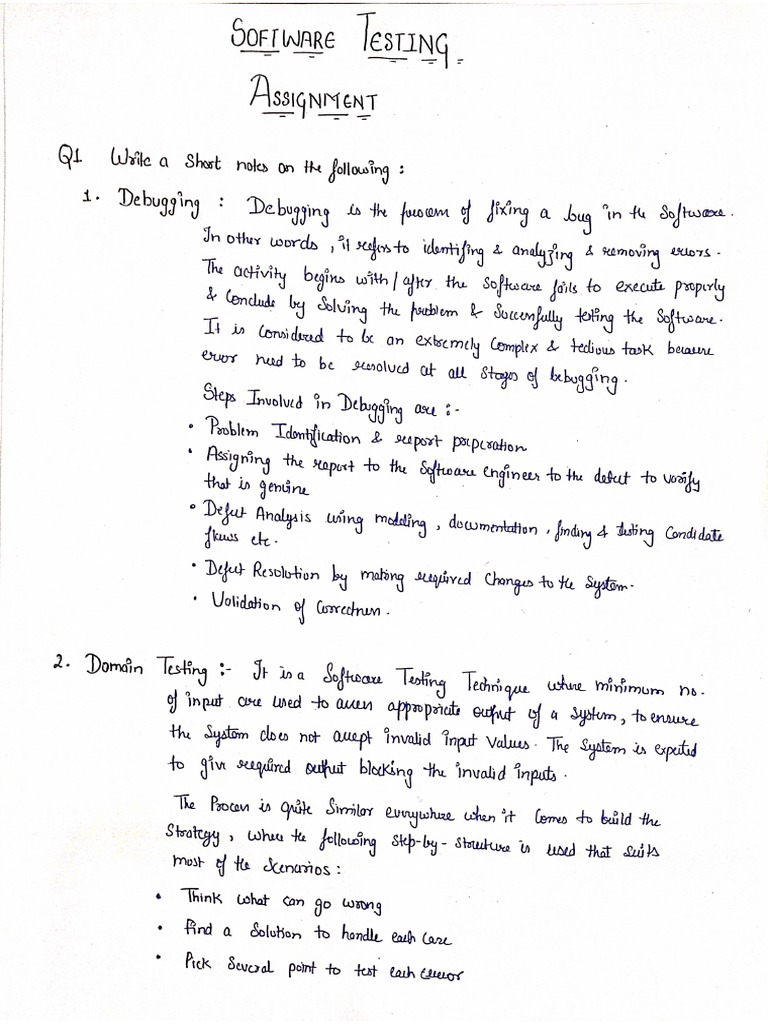 SOFTWARE TESTING
ASSIGNMENT
Q1 Write a Short notes on the following :
1. Debugging : Debugging is the process of fixing a bug in the Software.
In other words, it refers to identifing & analyzing & removing errors.
The activity begins with/after the software fails to execute properly
& Conclude by Solving the problem & Successfully testing the Software.
It is Considered to be an extremely Complex & tedious task because
error need to be resolved at all Stages of bebugging.
Steps Involved in Debugging are :-
• Problem Identification & report preparation
• Assigning the report to the Software engineer to the defect to verify
that is genuine
• Defect Analysis using modeling, documentation, finding & testing Candidate
flaws etc.
• Defect Resolution by making required Changes to the System.
• Validation of Correctness.
2. Domain Testing :- It is a Software Testing Technique where minimum no.
of input are used to access appropriate output of a system, to ensure
the System does not accept invalid input Values. The System is expected
to give required output blocking the invalid inputs.
The Process is quite Similar everywhere when it Comes to build the
Strategy, where the following step-by-structure is used that suits
most of the Scenarios :
• Think what can go wrong
• Find a Solution to handle each Case
• Pick Several point to test each error